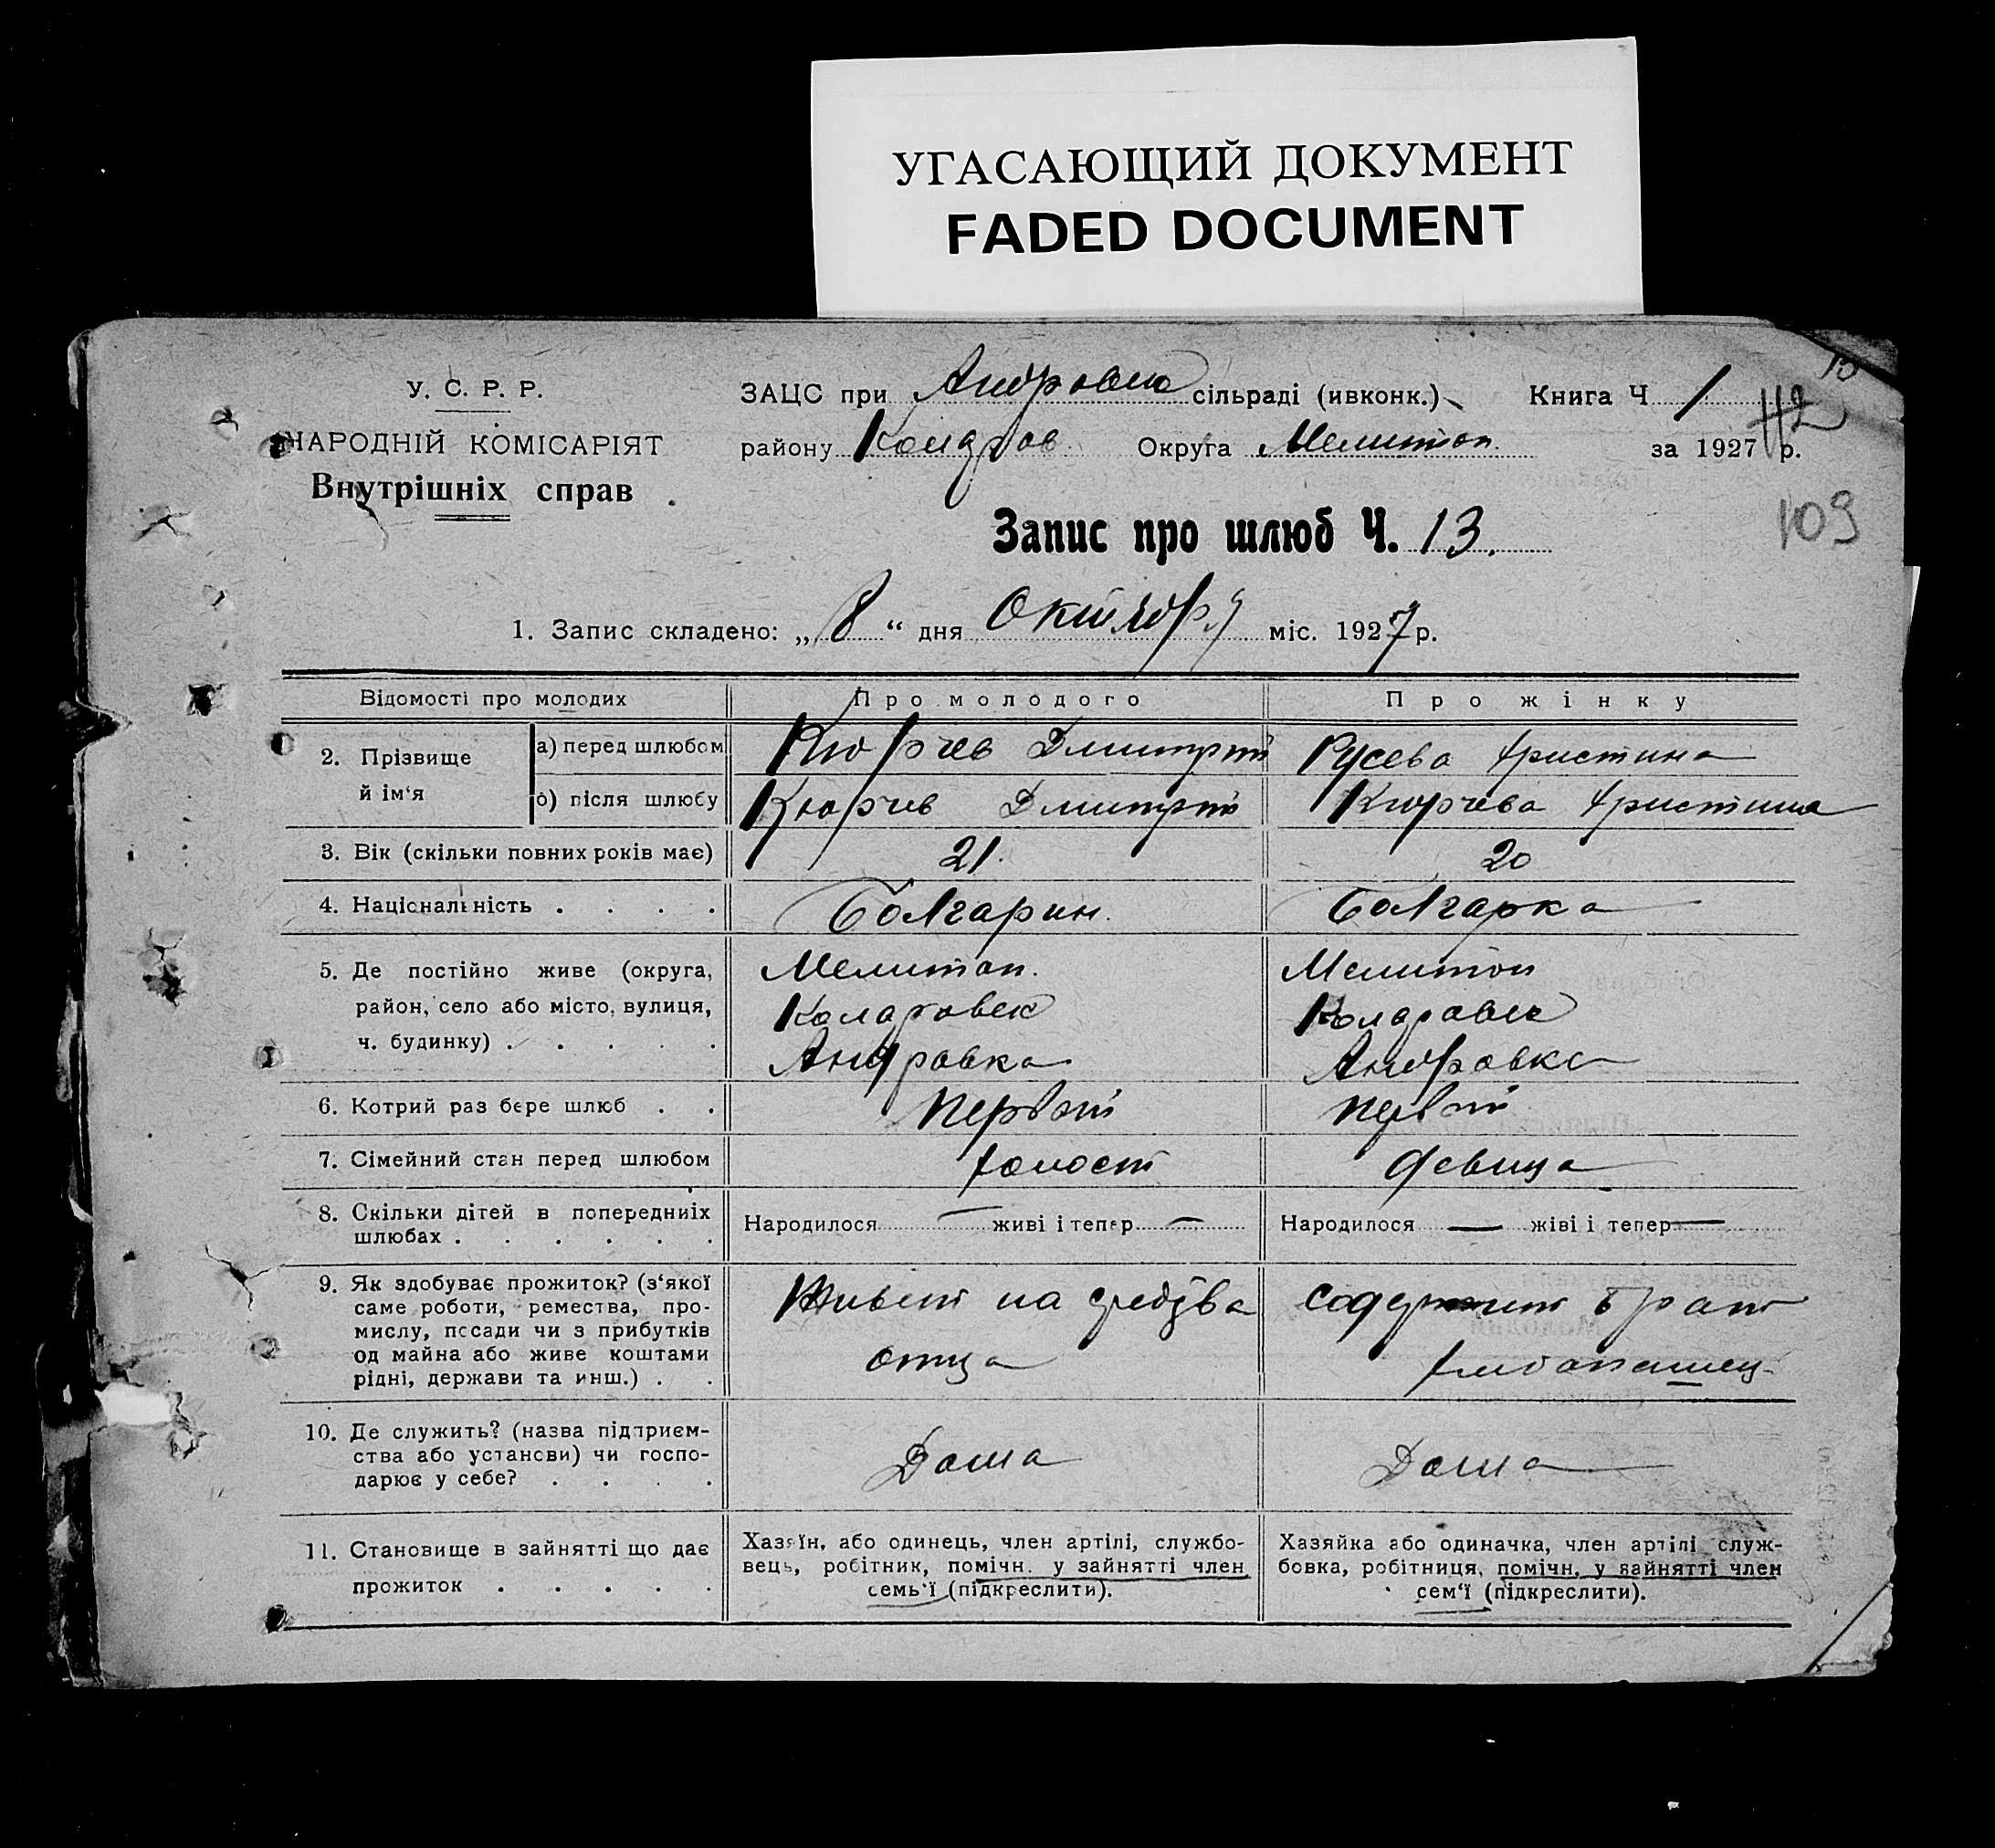 УГАСАЮЩИЙ ДОКУМЕНТ
FADED DOCUMENT
13
У. С. Р. Р.
НАРОДНІЙ КОМІСАРІЯТ
Внутрішніх справ
ЗАЦС при Андровск сільраді (ивконк.) Книга Ч 1
112
району Коларов Округа Мелитоп. за 1927 р.
109
Запис про шлюб Ч. 13.
1. Запис складено: „ 8 “ дня Октября міс. 1927 р.
Відомості про молодих Про молодого Про жінку
2. Прізвище й ім‘я
а) перед шлюбом Кюрчев Дмитрий Русева Христина
б) після шлюбу Кюрчев Дмитрий Кюрчева Христина
3. Вік (скільки повних років має) 21. 20
4. Національність . . . . Болгарин. Болгарка
5. Де постійно живе (округа, Мелитоп. Мелитоп
район, село або місто, вулиця, Коларовск Коларовск
ч. будинку) . . . . . Андровка Андровка
6. Котрий раз бере шлюб . . Первый Первый
7. Сімейний стан перед шлюбом холост девица
8. Скільки дітей в попередниіх
шлюбах . . . . . .
Народилося — живі і тепер — Народилося — жіві і тепер —
9. Як здобуває прожиток? (з‘якої
саме роботи, ремества, про-
мислу, посади чи з прибутків
од майна або живе коштами
рідні, держави та инш.) . .
Живет на средсва
отца
содержит брат
хлебопашец
10. Де служить? (назва підприєм-
ства або установи) чи госпо-
дарює у себе? . . . .
Дома Дома
11. Становище в зайнятті що дає
прожиток . . . . .
Хазяїн, або одинець, член артілі, службо-
вець, робітник, помічн. у зайнятті член
семь‘ї (підкреслити).
Хазяйка або одиначка, член артілі служ-
бовка, робітниця, помічн. у зайнятті член
сем‘ї (підкреслити).